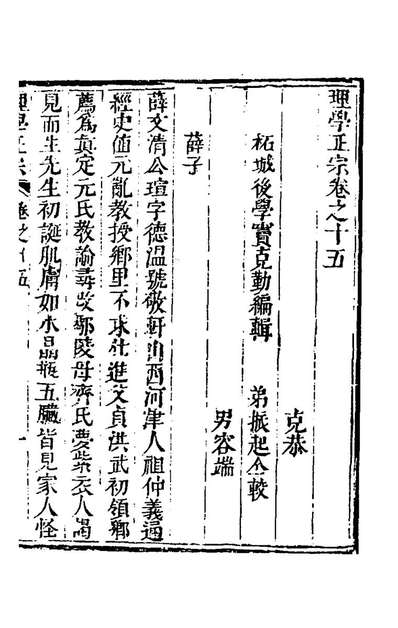 理學正宗卷之十五
克恭
柘城後學竇克勤編輯 弟振起仝較
男容端
薛子
薛文清公瑄字德温號敬軒山西河津人祖仲義通
經史值元亂教授鄉里不求仕進父貞洪武初領鄉
薦為真定元氏教諭尋改鄢陵母齊氏夢紫衣人謁
見而生先生初誕肌膚如水晶瑩五臟皆見家人怪
理學正宗 卷之十五 一